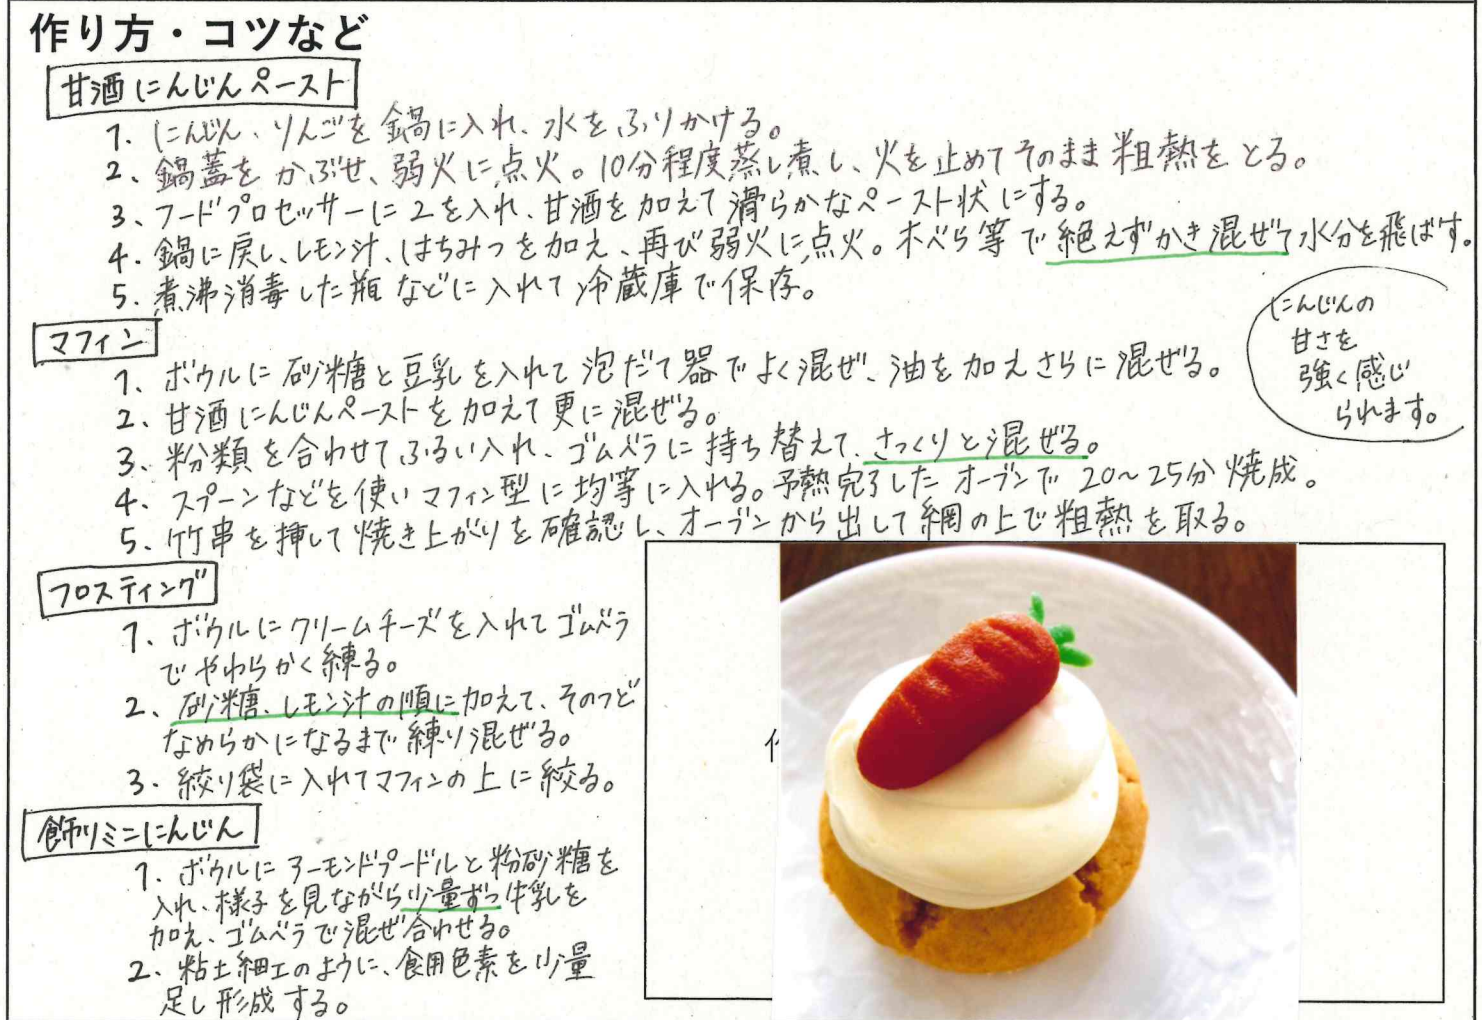 作り方・コツなど
甘酒にんじんペースト
1、にんじん、りんごを鍋に入れ、水をふりかける。
2、鍋蓋をかぶせ、弱火に点火。10分程度蒸し煮し、火を止めてそのまま粗熱をとる。
3、フードプロセッサーに2を入れ、甘酒を加えて滑らかなペースト状にする。
4、鍋に戻し、レモン汁、はちみつを加え、再び弱火に点火。木べら等で絶えずかき混ぜて水分を飛ばす。
5、煮沸消毒した瓶などに入れて冷蔵庫で保存。
にんじんの
甘さを
強く感じ
られます。
マフィン
1、ボウルに砂糖と豆乳を入れて泡だて器でよく混ぜ、油を加えさらに混ぜる。
2、甘酒にんじんペーストを加えて更に混ぜる。
3、粉類を合わせてふるい入れ、ゴムベラに持ち替えて、さっくりと混ぜる。
4、スプーンなどを使いマフィン型に均等に入れる。予熱完了したオーブンで20〜25分焼成。
5、竹串を挿して焼き上がりを確認し、オーブンから出して網の上で粗熱を取る。
フロスティング
1、ボウルにクリームチーズを入れてゴムベラ
でやわらかく練る。
2、砂糖、レモン汁の順に加えて、そのつど
なめらかになるまで練り混ぜる。
3、絞り袋に入れてマフィンの上に絞る。
飾りミニにんじん
1、ボウルにアーモンドプードルと粉砂糖を
入れ、様子を見ながら少量ずつ牛乳を
加え、ゴムベラで混ぜ合わせる。
2、粘土細工のように、食用色素を少量
足し形成する。